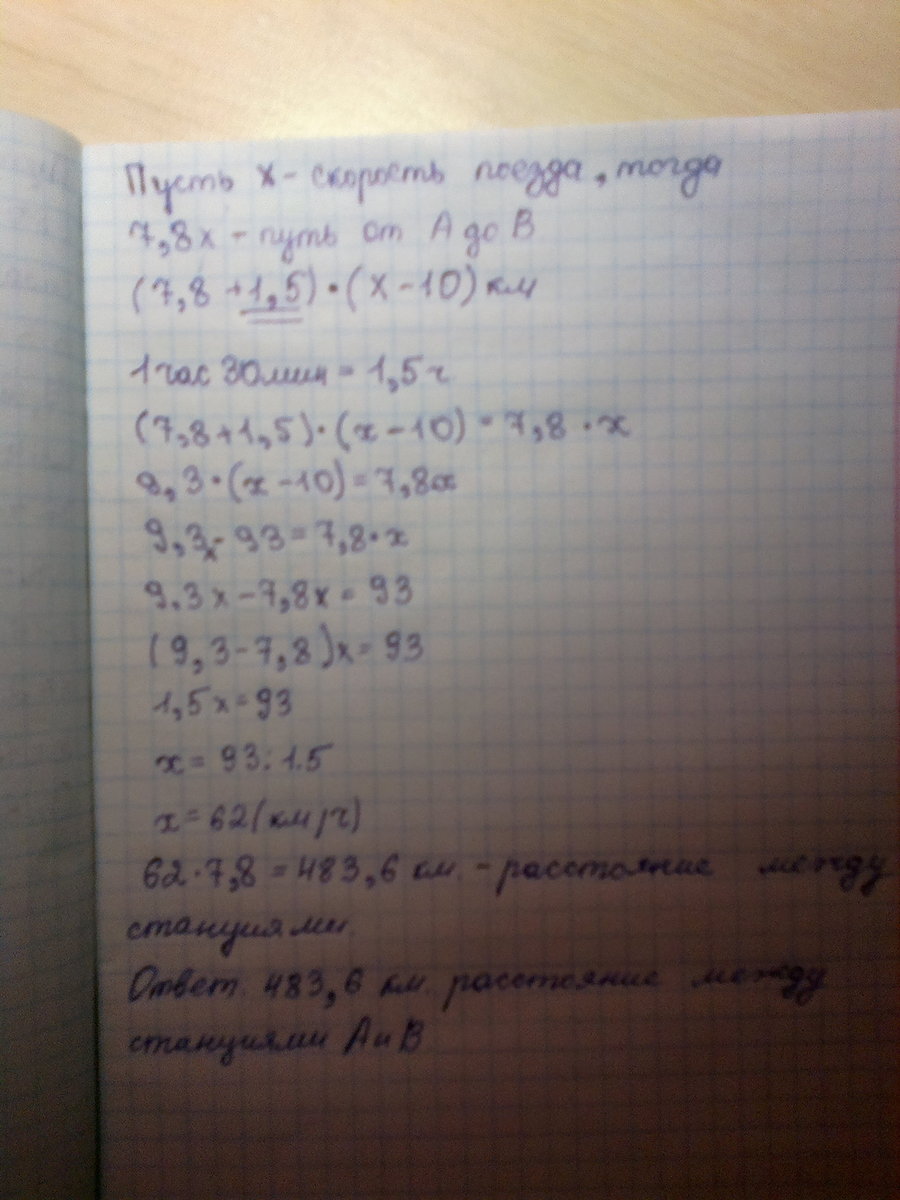 Пусть х - скорость поезда, тогда
7,8х - путь от А до В
(7,8 + 1,5) · (х - 10) км
1 час 30 мин = 1,5 ч
(7,8 + 1,5) · (х - 10) = 7,8 · х
9,3 · (х - 10) = 7,8х
9,3х - 93 = 7,8 · х
9.3х - 7,8х = 93
(9,3 - 7,8)х = 93
1,5х = 93
х = 93 : 1.5
х = 62 (км/ч)
62 · 7,8 = 483,6 км. - расстояние между
станциями.
Ответ. 483,6 км. расстояние между
станциями А и В